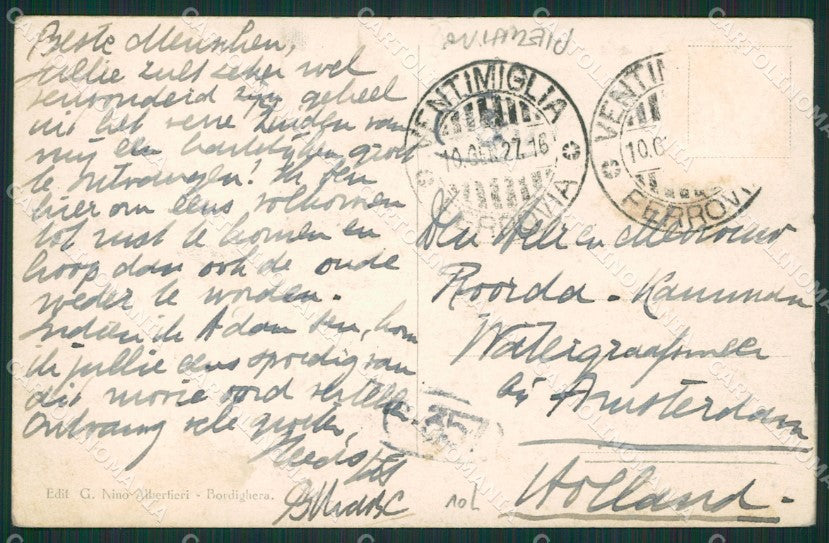 Beste Menschen,
jullie zult zeker wel
verwonderd zijn geheel
uit het verre Zuiden van
mij een hartelijken groet
te ontvangen! Ik ben
hier om eens volkomen
tot rust te komen en
hoop dan ook de oude
weder te worden.
Indien ik A'dam ben, kom
ik jullie eens spoedig van
dit mooie oord vertellen
Ontvang vele groeten,
Edit G. Nino Albertieri - Bordighera.
PIEMUTNO
VENTIMIGLIA
10.
27.16
FERROVIA
VENTIM
10.
FERROVI
Den Heer en Mevrouw
Roorda -
Watergraafsmeer
bij Amsterdam
Holland.
35
10L
CARTOLINOMANIA